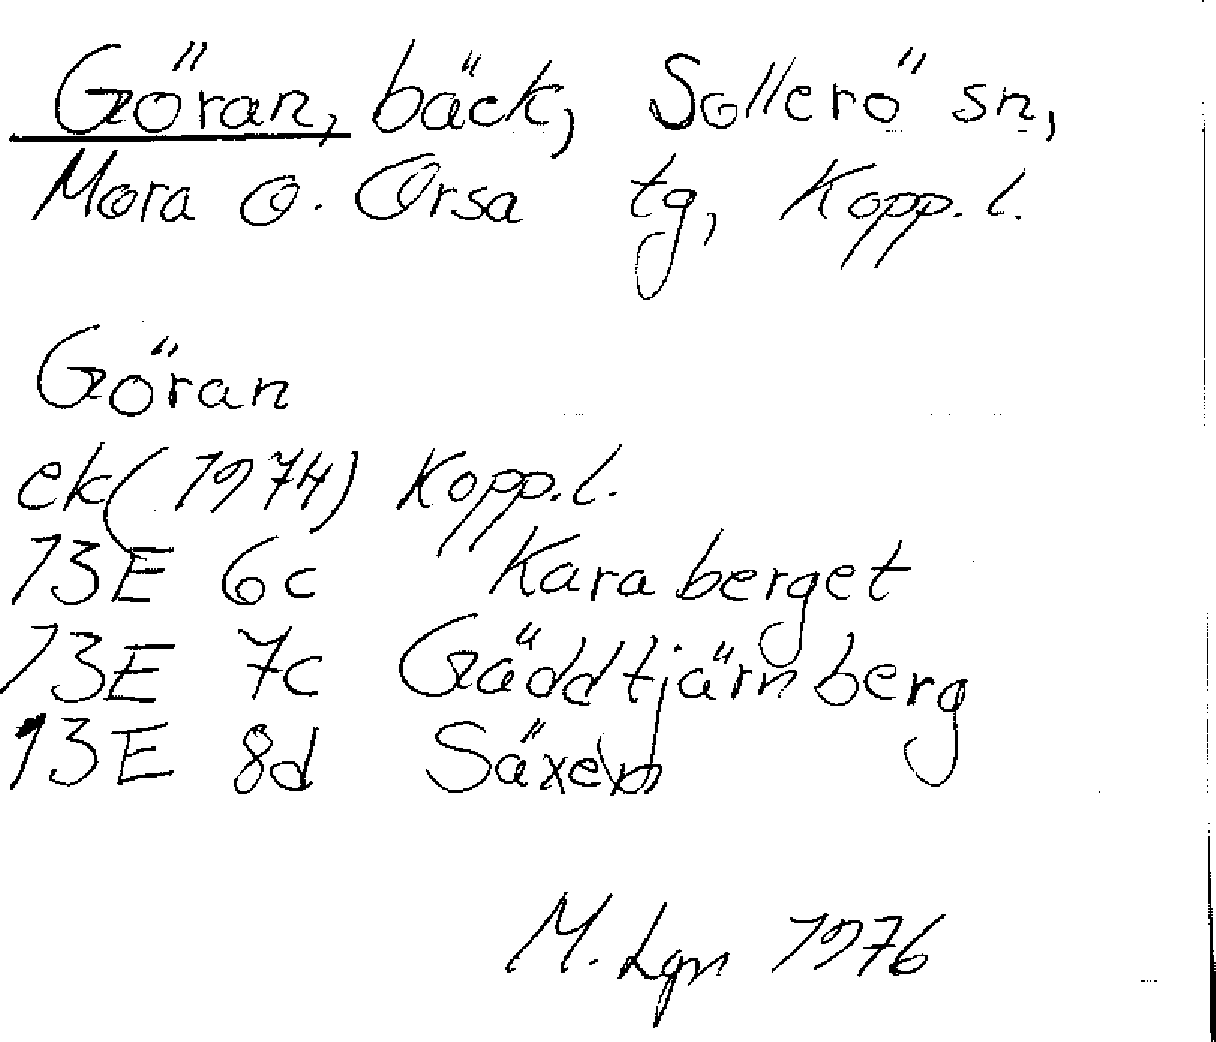 Göran, bäck, Sollerö sn,
Mora o. Orsa tg, Kopp. l.
Göran
ek (1974) Kopp. l.
13E 6c Karaberget
13E 7c Gäddtjärnberg
13E 8d Säxen
M. Lgn 1976